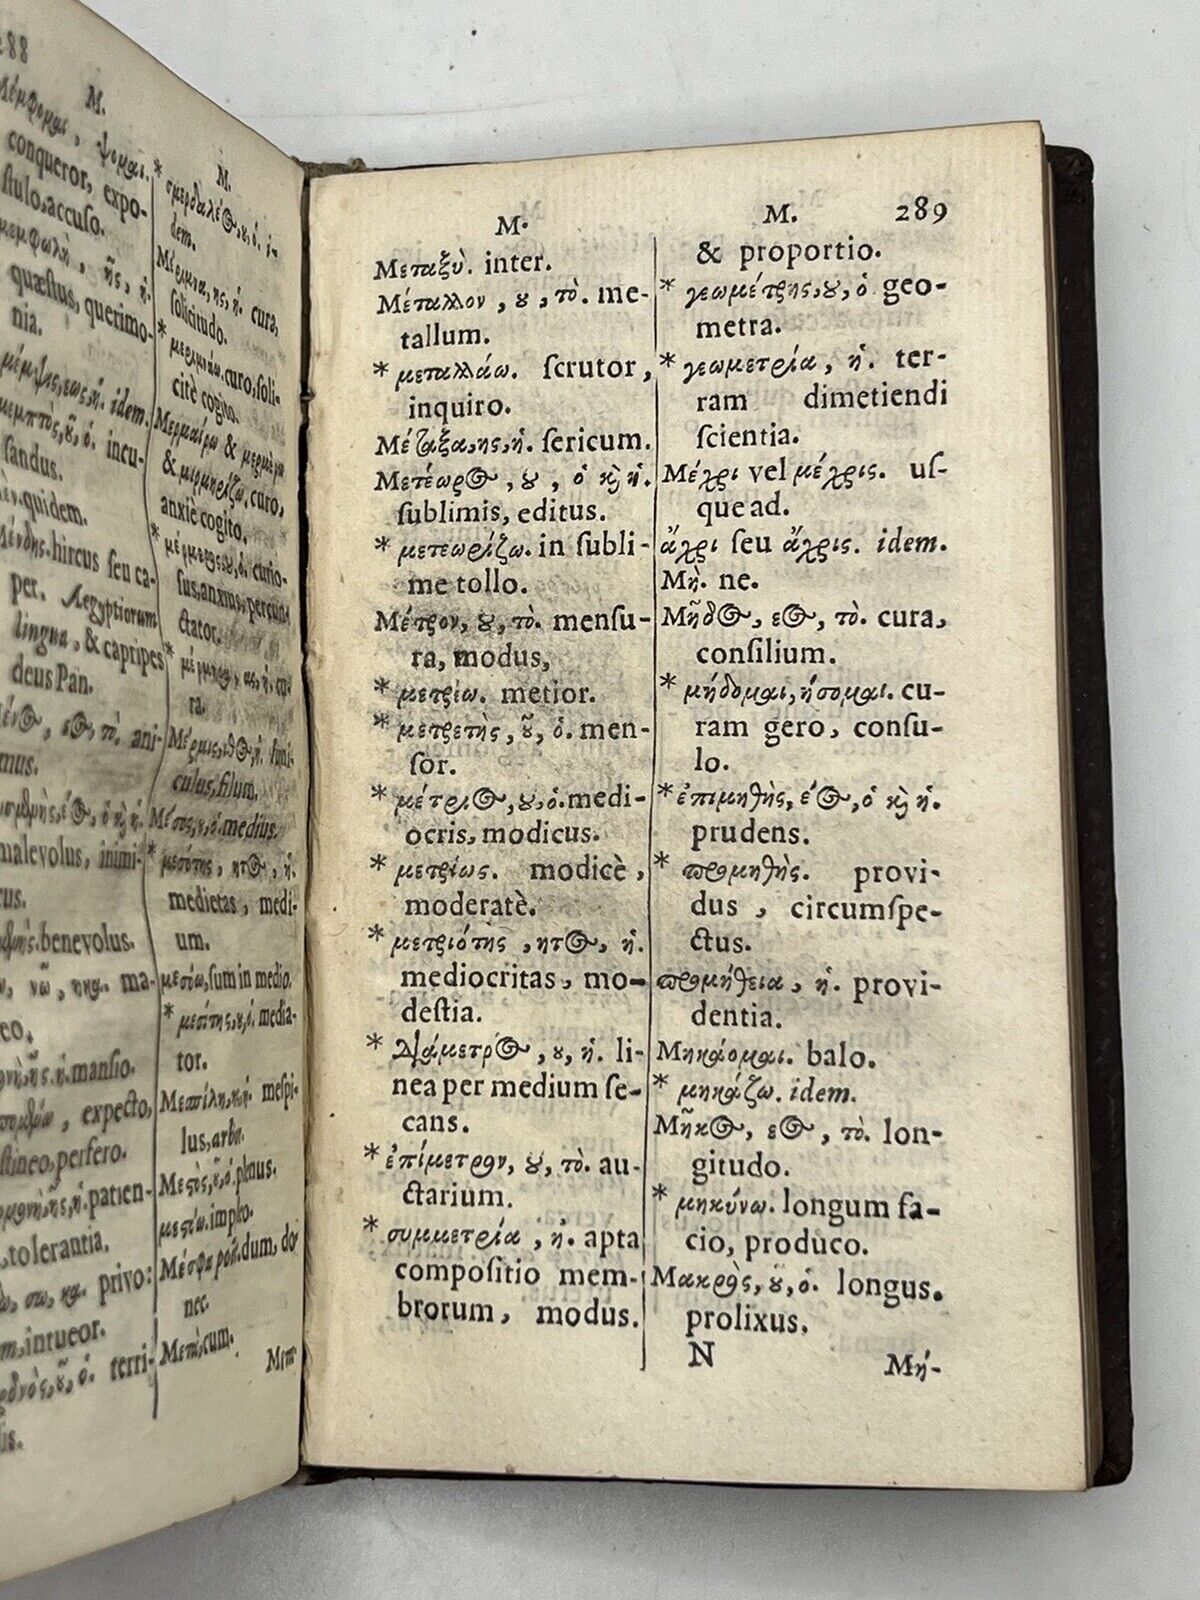 288
M.
conqueror, expo-
ſtulo, accuſo.
quæſtus, querimo-
nia.
idem.
incu-
ſandus.
quidem.
hircus ſeu ca-
per. Aegyptiorum
lingua, & capripes
deus Pan.
ani-
mus.
malevolus, inimi-
cus.
benevolus.
ma-
neo.
manſio.
expecto,
ſtineo, perfero.
patien-
tolerantia.
privo:
intueor.
terri-
M.
* σμερδαλέος, ου, ὁ. i-
dem.
Μέριμνα, ης, ἡ. cura,
ſolicitudo.
* μεριμνάω. curo, ſoli-
citè cogito.
& μερμηρίζω. curo,
anxiè cogito.
curio-
ſus, anxius, percun-
ctator.
cu-
ra.
Μέρμις, ιθος, ἡ. funi-
culus, filum.
Μέσος, ου, ὁ. medius.
* μεσότης, ητος, ἡ.
medietas, medi-
um.
ſum in medio.
* μεσίτης, ου, ὁ. media-
tor.
meſpi-
lus, arbor.
Μεστὸς, οῦ, ὁ. plenus.
μεστόω. impleo.
dum, do-
nec.
Μετὰ, cum.
Μετα-
M.
Μεταξὺ. inter.
Μέταλλον, ου, τὸ. me-
tallum.
* μεταλλάω. ſcrutor,
inquiro.
Μέταξα, ης, ἡ. ſericum.
Μετέωρος, ου, ὁ καὶ ἡ.
ſublimis, editus.
* μετεωρίζω. in ſubli-
me tollo.
Μέτρον, ου, τὸ. menſu-
ra, modus,
* μετρέω. metior.
* μετρετὴς, οῦ, ὁ. men-
ſor.
* μέτριος, ου, ὁ. medi-
ocris, modicus.
* μετρίως. modicè,
moderatè.
* μετριότης, ητος, ἡ.
mediocritas, mo-
deſtia.
* Διάμετρος, ου, ἡ. li-
nea per medium ſe-
cans.
* ἐπίμετρον, ου, τὸ. au-
ctarium.
* συμμετρία, ἡ. apta
compoſitio mem-
brorum, modus.
M. 289
& proportio.
* γεωμέτρης, ου, ὁ geo-
metra.
* γεωμετρία, ἡ. ter-
ram dimetiendi
ſcientia.
Μέχρι vel μέχρις. uſ-
que ad.
ἄχρι ſeu ἄχρις. idem.
Μὴ. ne.
Μῆδος, εος, τὸ. cura,
conſilium.
* μήδομαι, ήσομαι. cu-
ram gero, conſu-
lo.
* ἐπιμηθὴς, έος, ὁ καὶ ἡ.
prudens.
* προμηθὴς. provi-
dus, circumſpe-
ctus.
προμήθεια, ἡ. provi-
dentia.
Μηκάομαι. balo.
* μηκάζω. idem.
Μῆκος, εος, τὸ. lon-
gitudo.
* μηκύνω. longum fa-
cio, produco.
Μακρὸς, οῦ, ὁ. longus.
prolixus.
N Μή-